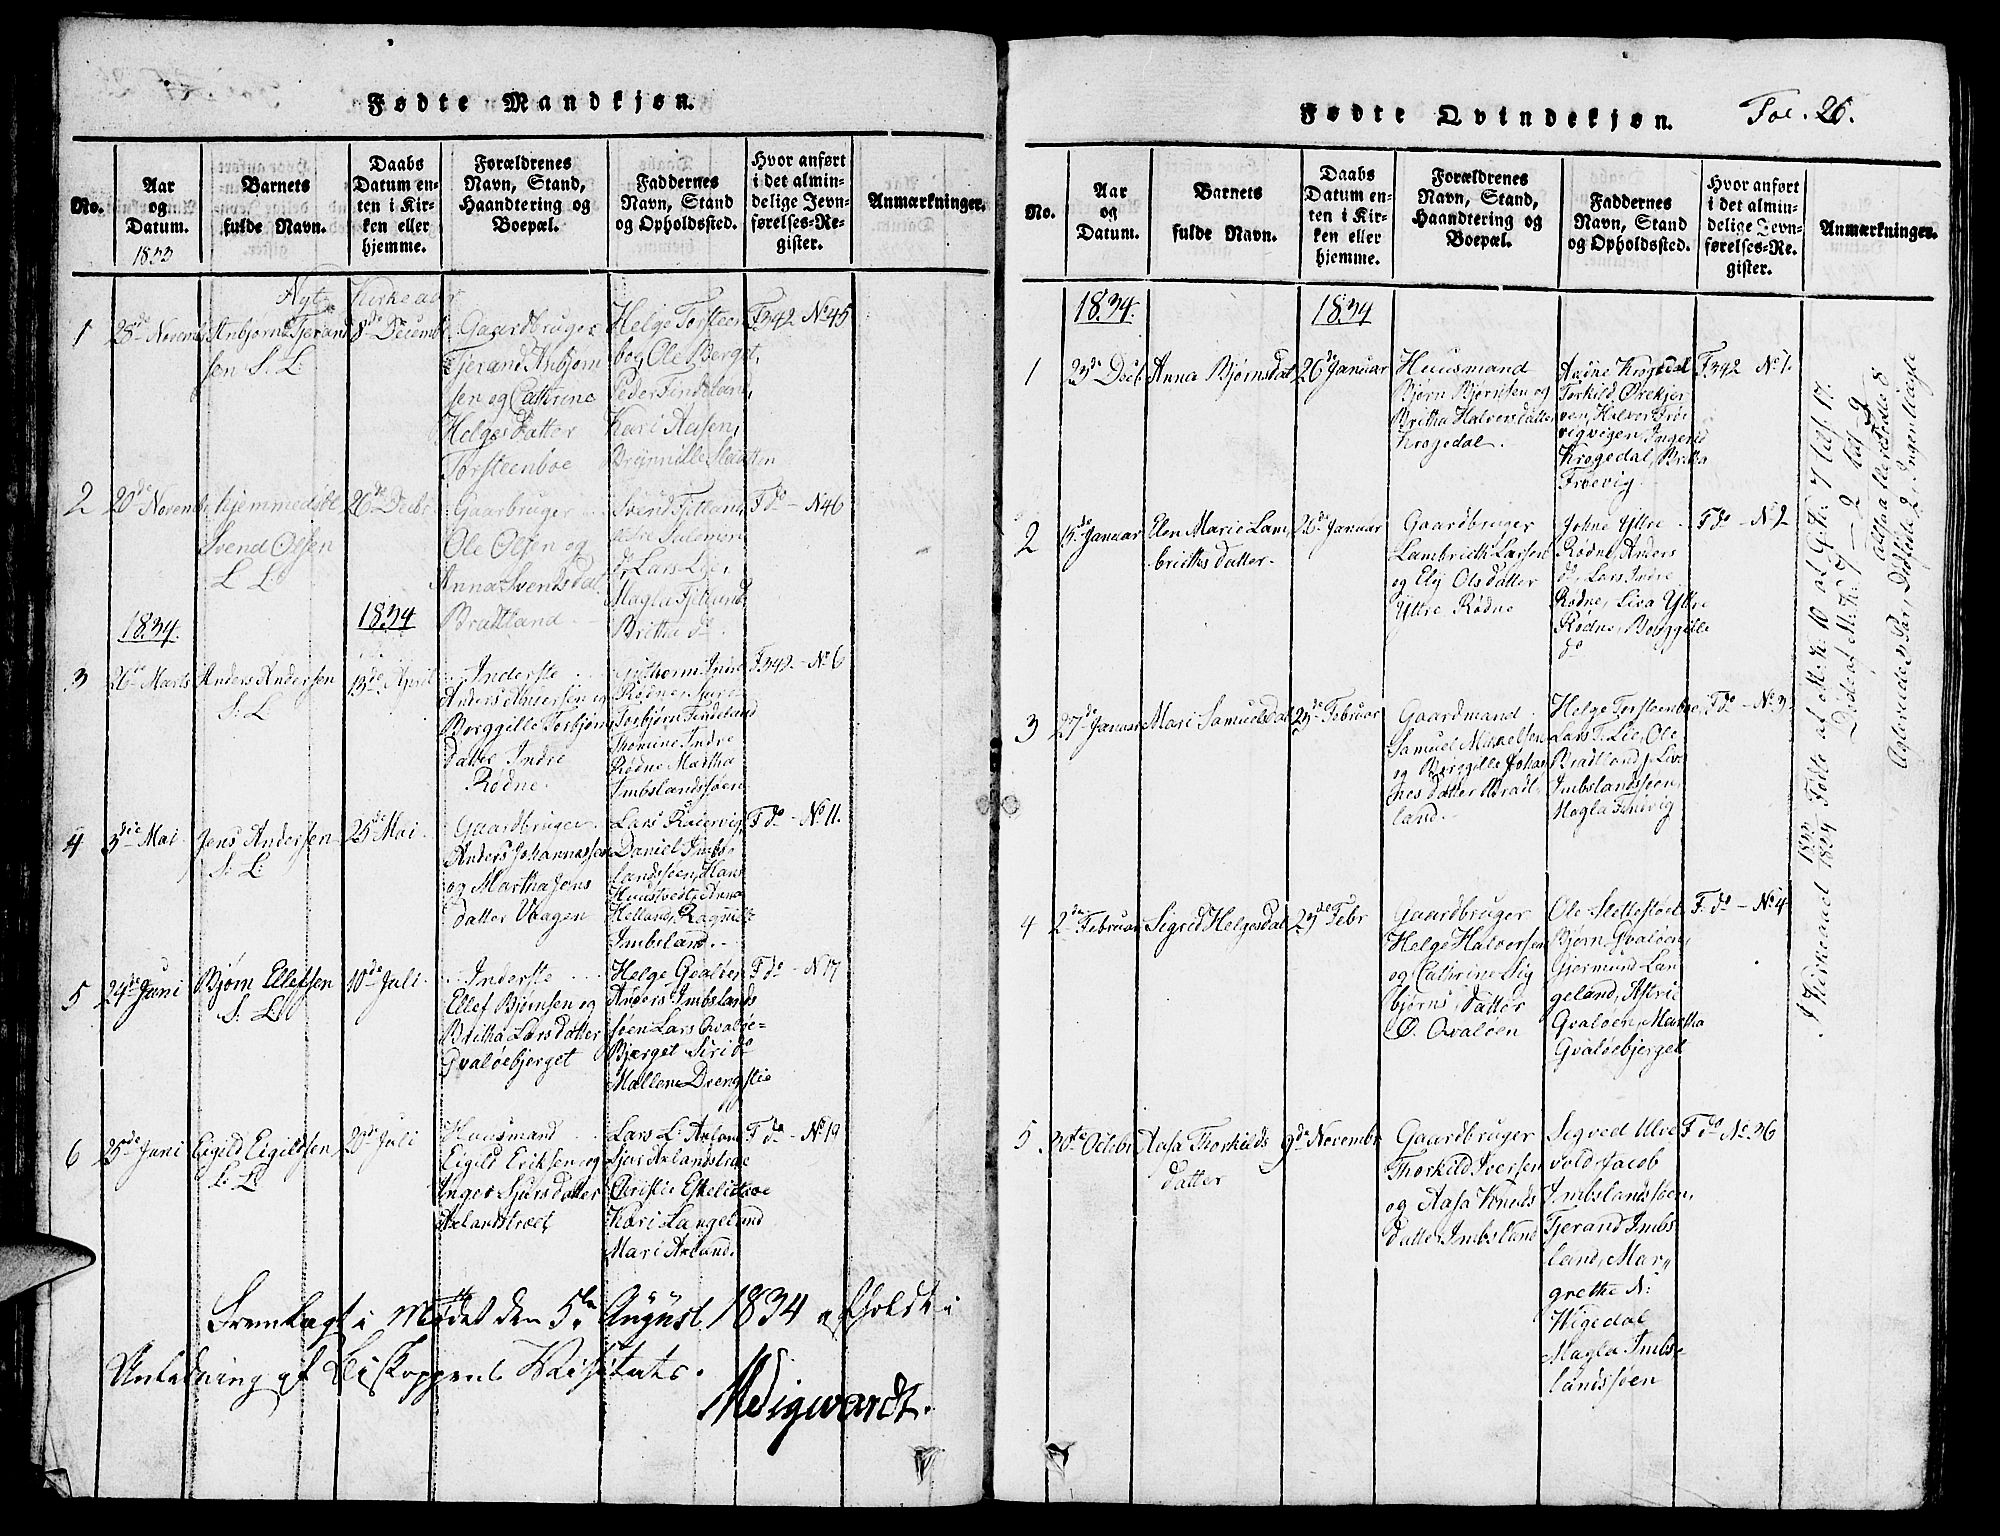 Fødte Mandkjøn.
No.
Aar
og
Datum.
1833
Barnets
fulde Navn.
Daabs
Datum en-
ten i Kir-
ken eller
hjemme.
Forældrenes
Navn, Stand,
Haandtering og
Boepæl.
Faddernes
Navn, Stand
og Opholdssted.
Hvor anført
i det almin-
delige Jevn-
førelses-Re-
gister.
Anmærkninger.
Nyt Kirkeaar
1
28de Novemb
Anbjørn Tjerand
sen S. L.
8de Decemb
Gaardbruger
Tjerand Anbjørn
sen og Cathrine
Helges Datter
Torsteenboe
Helge Torsteen
boe, Ole Berget,
Peder Findeland,
Kari Aasen,
F 342 No 45
2
20de Novemb
hjemmedøbt
Svend Olsen
L. L.
26de Decbr
Gaarbruger
Ole Olsen og
Anna Svendsdat
Bratland
Svend Fjetland
Lars Lie,
Magla Fjetland
Britha do
F do - No 46
1834.
1834
3
26de Marts
Anders Andersen
S. L.
13de April
Inderste
Anders Andersen og
Borggille Torbjørns
Datter Indre
Rødne.
Guthorm Indre
Rødne,
Torbjørn Findeland
Thomine Indre
Rødne Martha
Imbslandssøen
F 342 - No 6
4
3die Mai
Jens Andersen
S. L.
25de Mai
Gaardbruger
Anders Johannessen
og Martha Jens
datter Vaagen
Lars Raaevig,
Daniel Imbs-
landssøen, Hans
Huustvedt, Anna
Helland, Ragnilde
Imbsland.
F do - No 11.
5
24de Juni
Bjørn Ellefsen
S. L.
10de Juli
Inderste
Ellef Bjørnsen og
Britha Larsdatter
Qvaløebjerget
Helge Qvaløen
Anders Imbslands
søen Lars Qvaløe-
Bjerget Siri do
Mallene Drengstie
F do - No 17
6
25de Juni
Eigild Eigildsen
L. L.
20de Juli
Huusmand
Eigild Eriksen og
Inger Sjursdatter
Axlandstræet
Lars L. Axland
Sjur Axlandstræe
Christie Eskelidtræe
Kari Langeland
Mari Axland.
F do - No 19
Fremlagt i Mødet den 5te August 1834 afholdt i
Anledning af Biskoppens Visitats.
Fødte Qvindekjøn.
Fol. 26.
No.
Aar
og
Datum.
Barnets
fulde Navn.
Daabs
Datum en-
ten i Kir-
ken eller
hjemme.
Forældrenes
Navn, Stand,
Haandtering og
Boepæl.
Faddernes
Navn, Stand
og Opholdssted.
Hvor anført
i det almin-
delige Jevn-
førelses-Re-
gister.
Anmærkninger.
1834.
1834
1
23de Decb
Anna Bjørnsdat
26de Januar
Huusmand
Bjørn Bjørnsen og
Britha Halversdatter
Krogedal.
Andne Krogedal
Torkild Ørekjer
ven, Halver Frøe
vigvigen, Ingerid
Krogedal, Britha
Frøevig.
F 342 No 1.
2
15de Januar
Elen Marie Lam
brikts datter
26de Januar
Gaardbruger
Lambrikth Larsen
og Elij Olsdatter
Yttre Rødne
Johne Yttre
Rødne, Anders
do, Lars Indre
Rødne, Siva Yttre
Rødne, Borggille
do
F do - No 2
3
27de Januar
Mari Samuelsdat
23de Februar
Gaardmand
Samuel Mikkelsen
og Borggille Johan
nesdatter Bradt
land.
Helge Torsteenboe,
Lars T. Lie, Ole
Bradtland, Siv
Imbslandssøen,
Magla Frøevig
F do - No 3.
4
2den Februar
Sigrid Helgesdat
23de Febr
Gaardbruger
Helge Halversen
og Cathrine Sig
bjørns Datter
Ø. Qvaløen
Ole Slettestøel
Bjørn Qvaløen,
Gjermund Lan
geland, Astrie
Qvaløen, Martha
Qvaløebjerget
F. do - No 4
5
30te Octbr
Aasa Thorkilds
datter
9de Novembr
Gaardbruger
Thorkild Iversen
og Aasa Knuds
datter Imbsland
Sigved Ulve
vold, Jacob
Imbslandssøen,
Tjerand Imbs
land, Mar„
grethe N:
Wigedal
Magla Imbs-
landssøen
F do No 36
I Kirkeaaet 1833/1834 Fødte af M.K. 10 af Q.K. 7 tils. 17.
Døde af M.K. 7 — 2 tils 9
altsaa flere Fødte 8
Ægteviede 5 Par, Didlede 2. Ingen